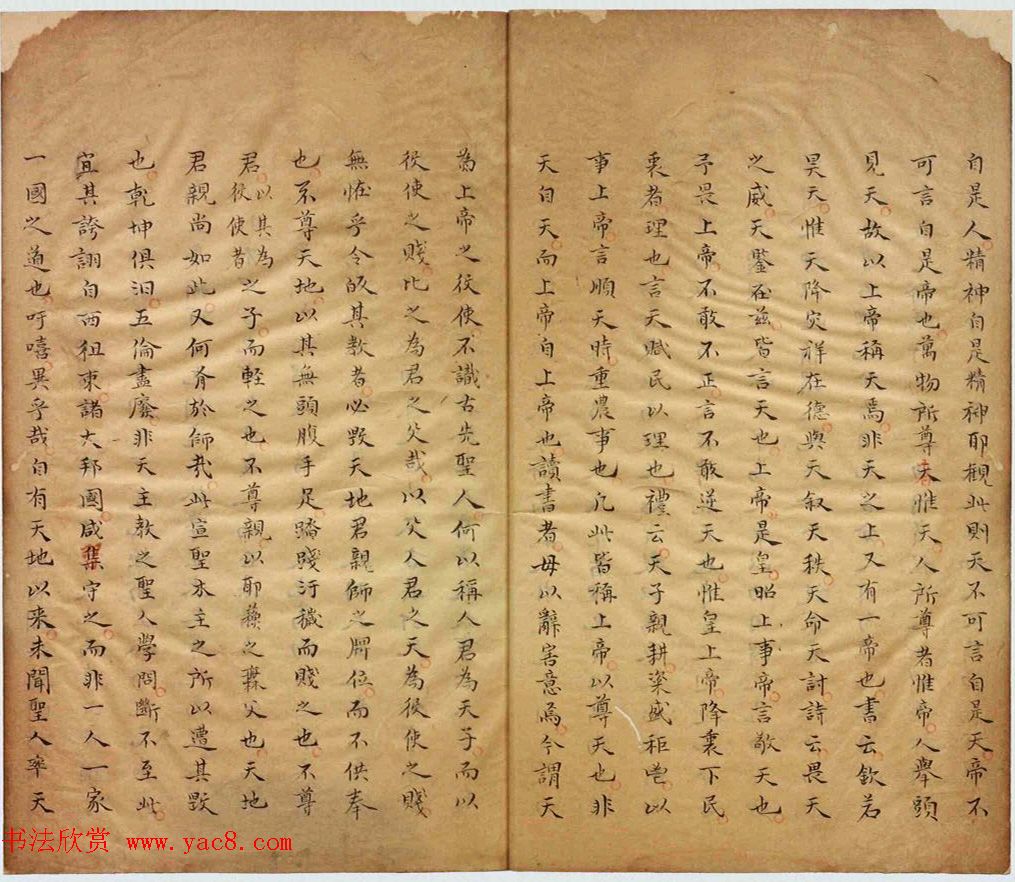 自是人精神自是精神耶觀此則天不可言自是天帝不
可言自是帝也萬物所尊者惟天人所尊者惟帝人舉頭
見天故以上帝稱天焉非天之上又有一帝也書云欽若
昊天惟天降灾祥在德與天叙天秩天命天討詩云畏天
之威天鑒在兹皆言天也上帝是皇昭上事帝言敬天也
予畏上帝不敢不正言不敢逆天也惟皇上帝降衷下民
衷者理也言天賦民以理也禮云天子親耕粢盛秬鬯以
事上帝言順天時重農事也凡此皆稱上帝以尊天也非
天自天而上帝自上帝也讀書者毋以辭害意焉今謂天
為上帝之役使不識古先聖人何以稱人君為天子而以
役使之賤比之為君之父哉以父人君之天為役使之賤
無恠乎令皈其教者必毀天地君親師之牌位而不供奉
也不尊天地以其無頭腹手足踏踐汙穢而賤之也不尊
君以其為役使者之子而輕之也不尊親以耶穌之無父也天地
君親尚如此又何有於師哉此宣聖木主之所以遭其毀
也乾坤俱汨五倫盡廢非天主教之聖人學問斷不至此
宜其誇詡自西徂東諸大邦國咸集守之而非一人一家
一國之道也吁嘻異乎哉自有天地以來未聞聖人率天
书法欣赏 www.yac8.com